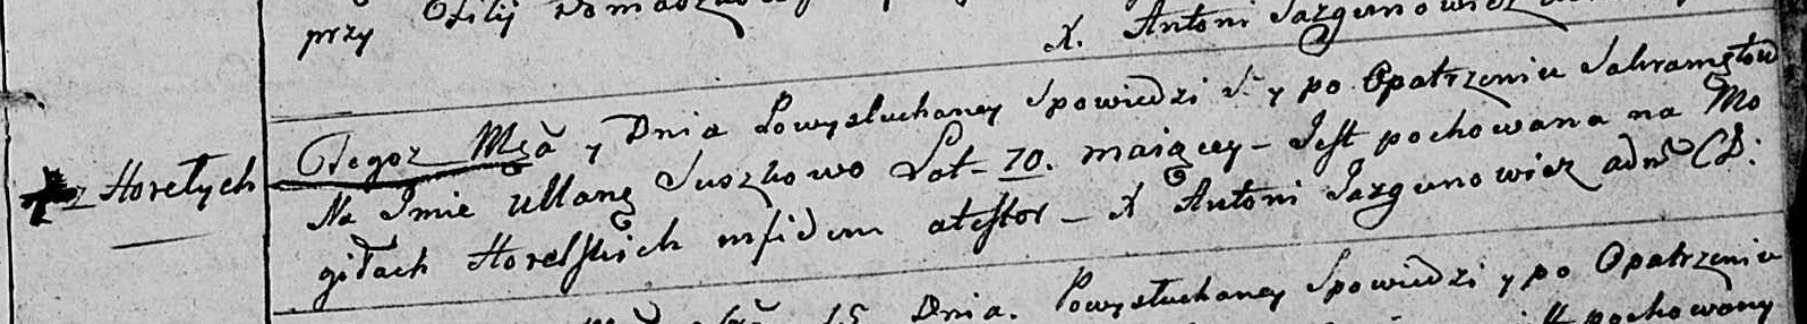 przy Filij
X. Antoni Jazgunowicz
z Horełych
Tegoz Mca y Dnia Powysłuchaney Spowiedzi S. y po Opatrzeniu Sakramętow
Na Imie Ullanę Suszkowo Lat 70. maiącey - Jest pochowana na Mo
giłach Horelskich in fidem atestor - X Antoni Jazgunowicz adm CD:
15 Dnia. Powysłuchaney Spowiedzi y po Opatrzeniu
pochowany